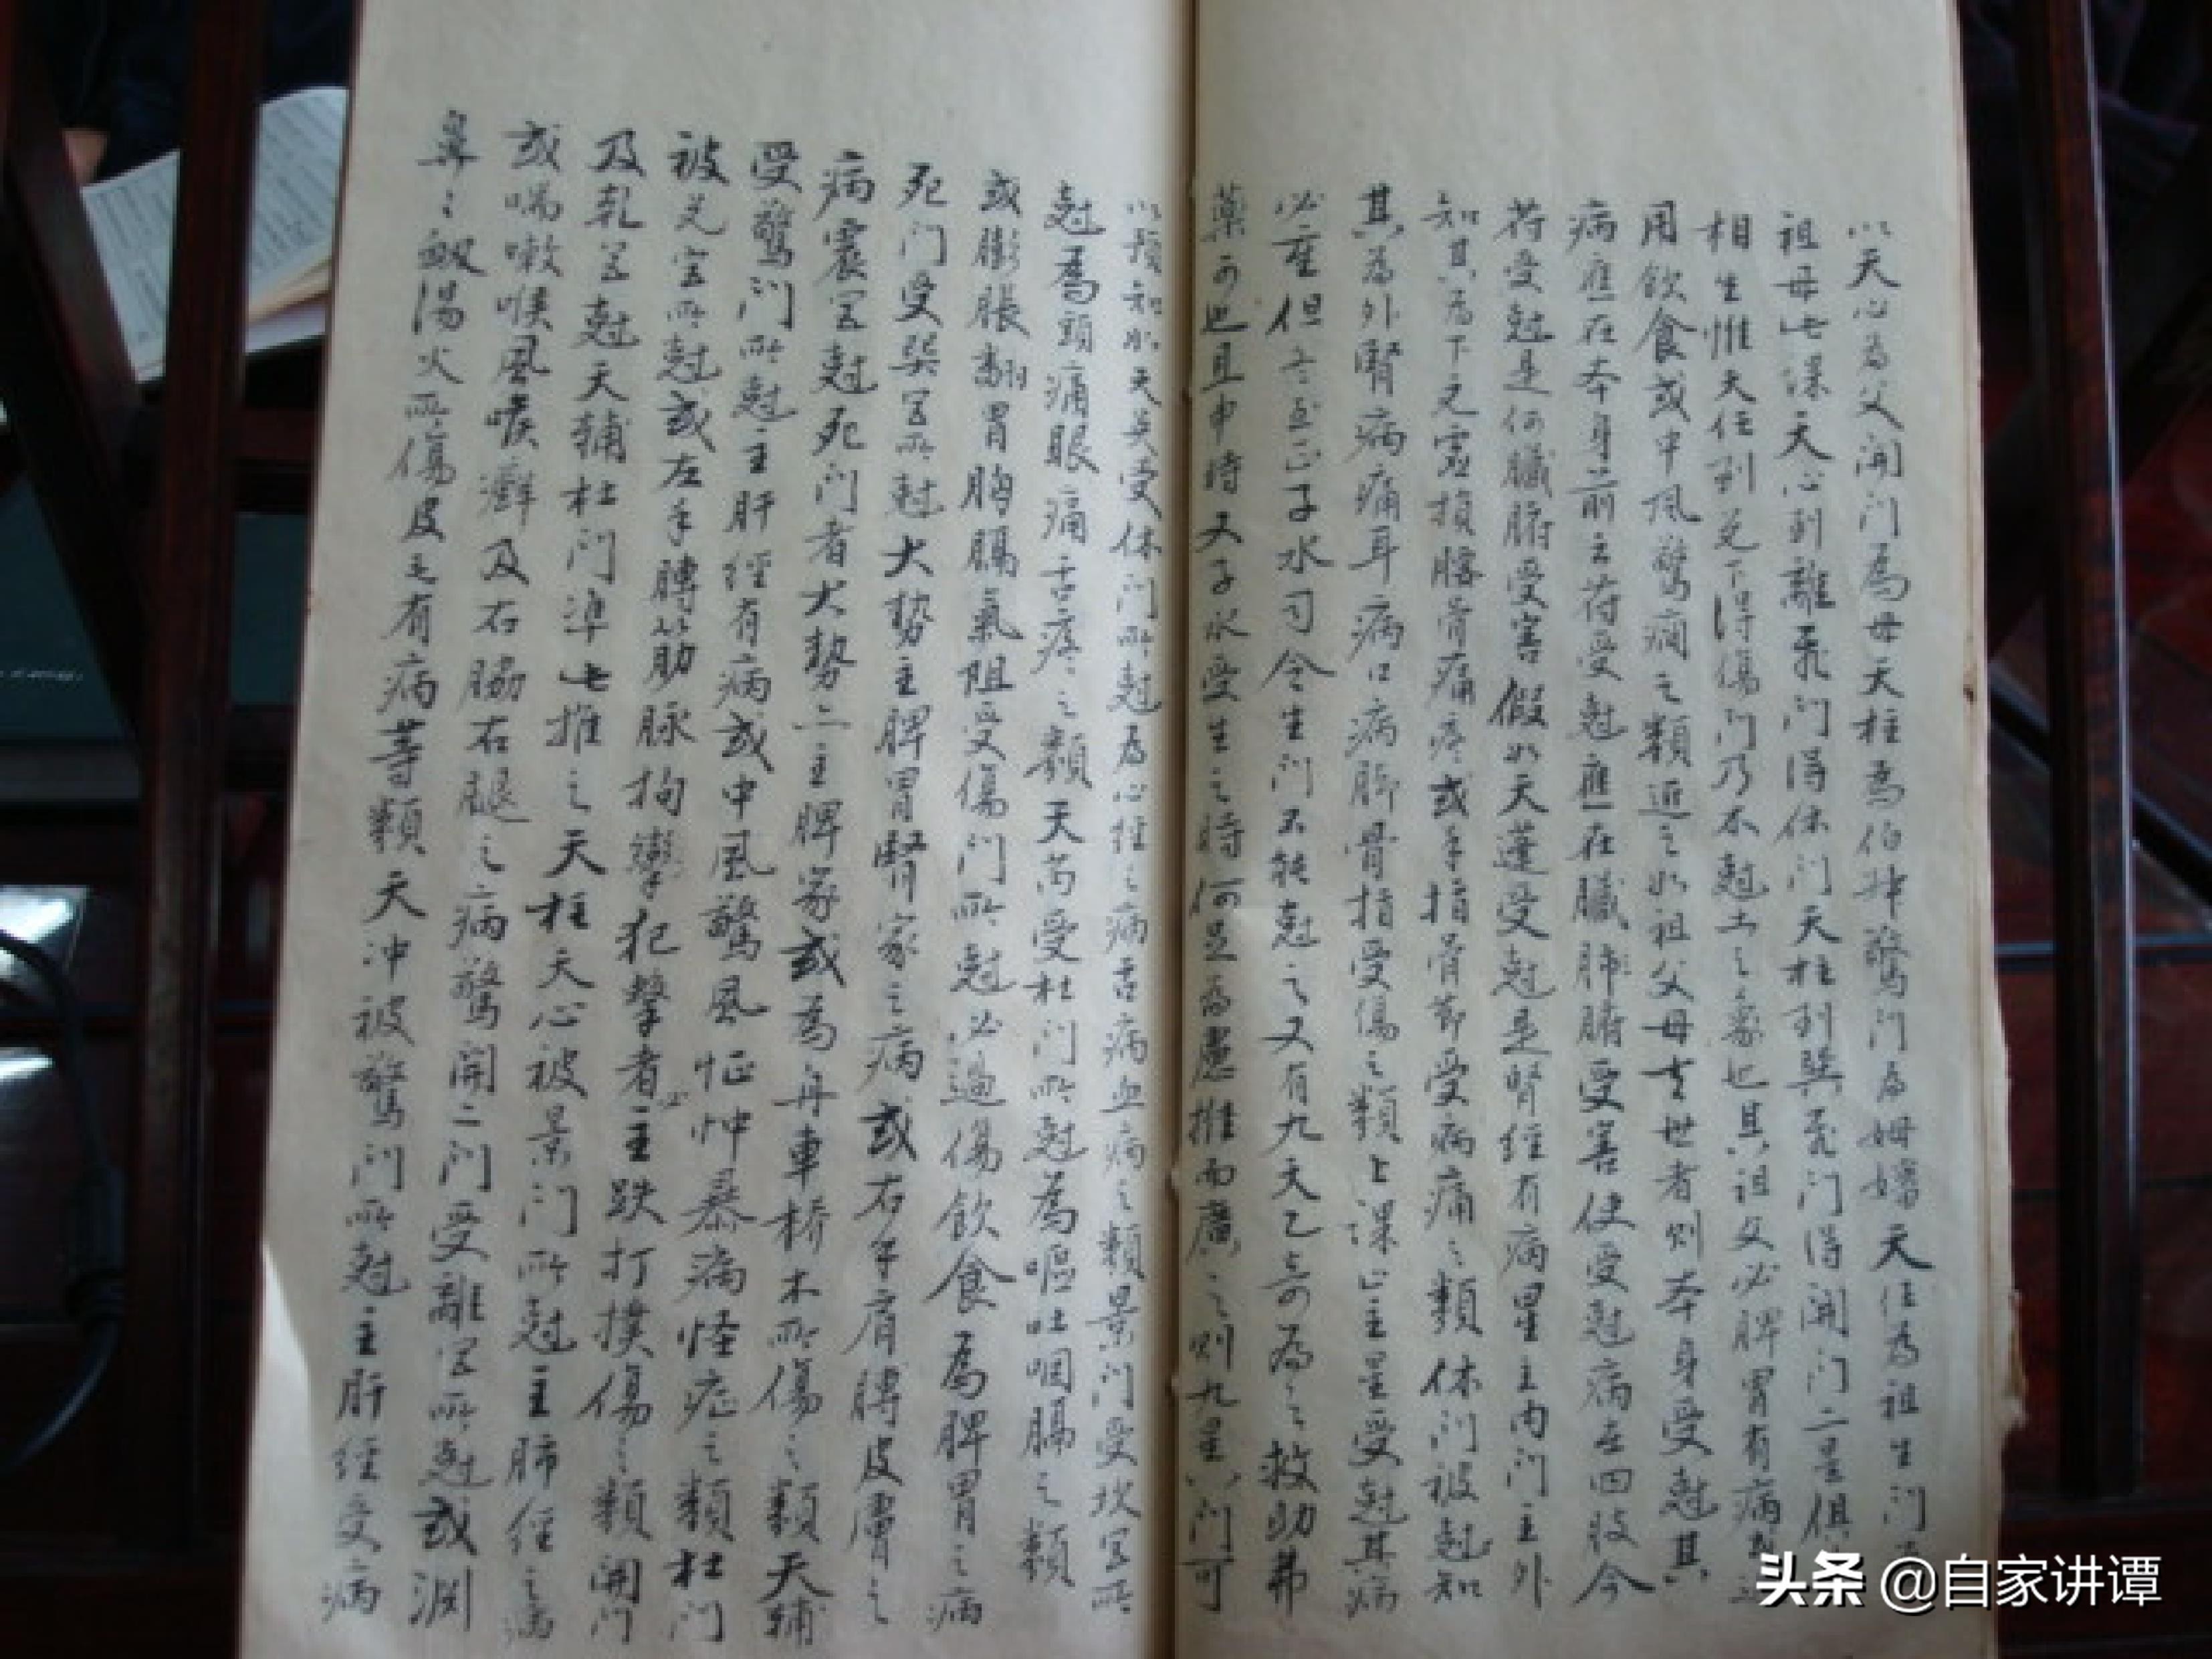 以天心為父開門為母天柱為伯艸驚門為姆嬸天任為祖生門為
祖母此課天心到離飛門得休門天柱到巽飛門得開門二星俱
相生惟天任到兌下得傷門乃木尅土之象也其祖父必脾胃有病
用飲食或中風驚癇之類近之如祖父母去世者則本身受尅其
病應在本身前主符受尅應在臟肺腑受害使受尅病在四肢今
符受尅是何臟腑受害假如天蓬受尅是腎經有病星主内門主外
知其為下元虛損髂骨痛疼或手指骨節受病痛之類休門被尅知
其為外腎病痛耳病口病脚骨指受傷之類上課亡主星受尅其病
必産但之至正子水司令生門不能尅之又有九天乙奇為之救助弗
藥可也且申時又子水受生之時何足為慮推而廣之則九星八門可
以預知如天英受休門所尅為心経之病舌病血病之類景門受坎宮所
尅為頭痛眼痛舌疼之類天芮受杜門所尅為嘔吐咽膈之類
或膨脹翻胃胸膈氣阻受傷門所尅必過傷飲食為脾胃之病
死门受巽宮所尅大势主脾胃腎家之病或右手肩膊皮膚之
病震宮尅死门者大势亡主脾家或為舟車橋木所傷之類天輔
受驚门所尅主肝經有病或中風驚風怔忡暴病怪症之類杜门
被兌宮所尅或左手膊筋脉拘攣犯擊者必主跌打撲傷之類開门
及乾宮尅天輔杜门準此推之天柱天心被景门所尅主肺經之病
或喘嗽喉風喉癬及右脇右腿之病驚開二门受離宮所尅或淵
鼻之衂湯火所傷皮毛有病等類天冲被驚门所尅主肝经受病
头条 @自家讲谭